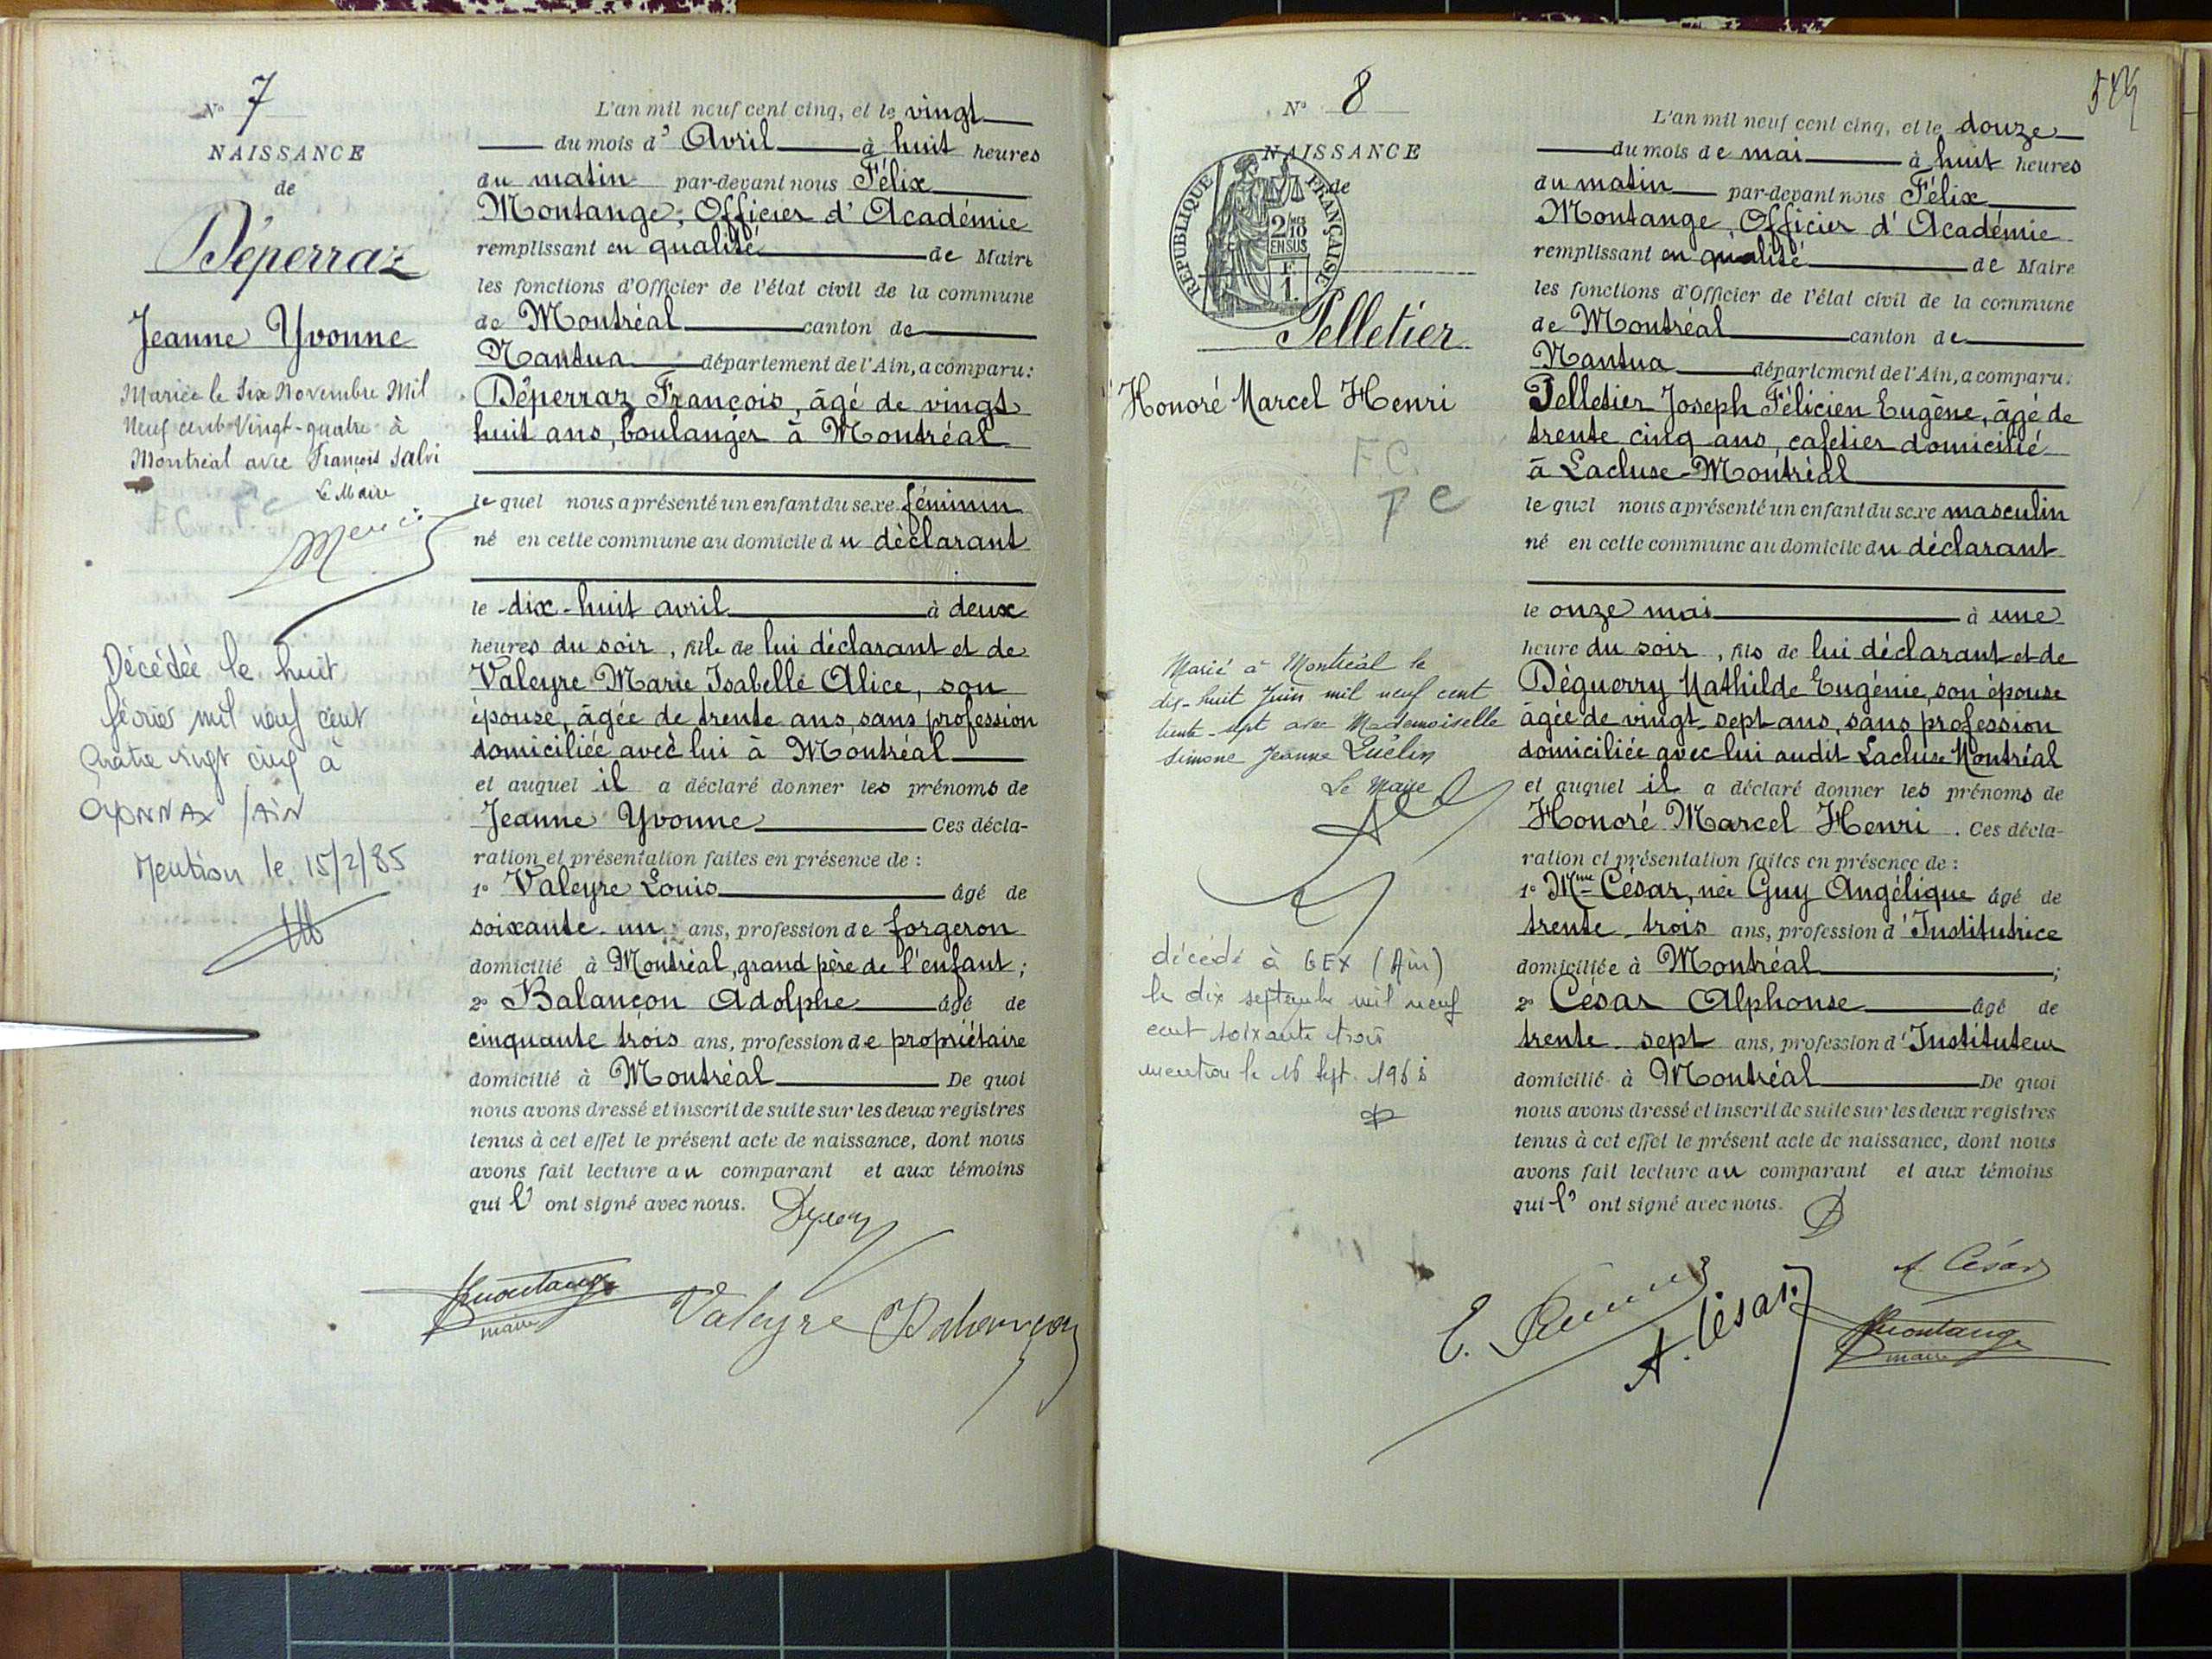 N° 7
NAISSANCE
de
Déperraz
Jeanne Yvonne
Mariée le Six Novembre Mil
Neuf cent Vingt-quatre à
Montréal avec François Salvi
Le Maire
Décédée le huit
février mil neuf cent
quatre vingt cinq à
OYONNAX / AIN
Mention le 15/2/85
L'an mil neuf cent cinq, et le vingt
du mois d' Avril à huit heures
du matin par-devant nous Félix
Montange, Officier d'Académie
remplissant en qualité de Maire
les fonctions d'Officier de l'état civil de la commune
de Montréal canton de
Nantua département de l'Ain, a comparu:
Déperraz François, âgé de vingt
huit ans, boulanger à Montréal
le quel nous a présenté un enfant du sexe féminin
né en cette commune au domicile du déclarant
le dix-huit avril à deux
heures du soir, fille de lui déclarant et de
Valeyre Marie Isabelle Alice, son
épouse, âgée de trente ans, sans profession
domiciliée avec lui à Montréal
et auquel il a déclaré donner les prénoms de
Jeanne Yvonne Ces décla-
ration et présentation faites en présence de :
1° Valeyre Louis âgé de
soixante-un ans, profession de forgeron
domicilié à Montréal, grand père de l'enfant;
2° Balançon Adolphe âgé de
cinquante trois ans, profession de propriétaire
domicilié à Montréal De quoi
nous avons dressé et inscrit de suite sur les deux registres
tenus à cet effet le présent acte de naissance, dont nous
avons fait lecture au comparant et aux témoins
qui l' ont signé avec nous.
Montange
maire
Valeyre Balançon
N° 8
NAISSANCE
de
REPUBLIQUE FRANÇAISE
2/10
EN SUS
F.
1.
Pelletier
Honoré Marcel Henri
F.C.
Marié à Montréal le
dix-huit Juin mil neuf cent
trente-sept avec Mademoiselle
Simone Jeanne Luélin
Le Maire
décédé à GEX (Ain)
le dix septembre mil neuf
cent soixante trois
mention le 16 Sept. 1963
L'an mil neuf cent cinq, et le douze
du mois de mai à huit heures
du matin par-devant nous Félix
Montange, Officier d'Académie
remplissant en qualité de Maire
les fonctions d'Officier de l'état civil de la commune
de Montréal canton de
Nantua département de l'Ain, a comparu:
Pelletier Joseph Félicien Eugène, âgé de
trente cinq ans, cafetier domicilié
à Lacluse-Montréal
le quel nous a présenté un enfant du sexe masculin
né en cette commune au domicile du déclarant
le onze mai à une
heure du soir, fils de lui déclarant et de
Déguerry Mathilde Eugénie, son épouse
âgée de vingt-sept ans, sans profession
domiciliée avec lui audit Lacluse Montréal
et auquel il a déclaré donner les prénoms de
Honoré Marcel Henri. Ces décla-
ration et présentation faites en présence de :
1° Mme César, née Guy Angélique âgé de
trente-trois ans, profession d'Institutrice
domiciliée à Montréal ;
2° César Alphonse âgé de
trente-sept ans, profession d'Instituteur
domicilié à Montréal De quoi
nous avons dressé et inscrit de suite sur les deux registres
tenus à cet effet le présent acte de naissance, dont nous
avons fait lecture au comparant et aux témoins
qui l' ont signé avec nous.
A César
A. César
Montange
maire